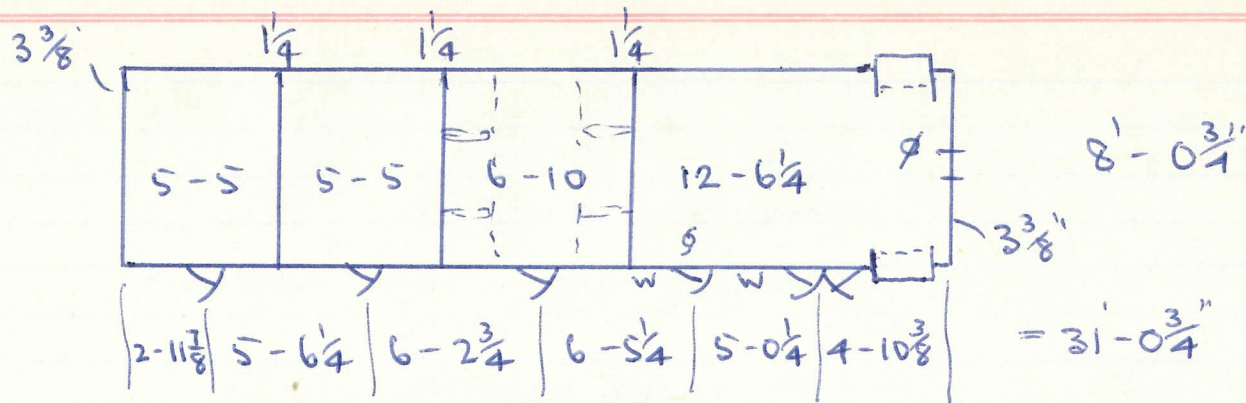 3 3/8" 1 1/4 1 1/4 1 1/4
5-5 5-5 6-10 12-6 1/4 ø 8'-0 3/4"
ø 3 3/8"
W W
2-11 7/8 5-6 1/4 6-2 3/4 6-5 1/4 5-0 1/4 4-10 3/8 = 31'-0 3/4"